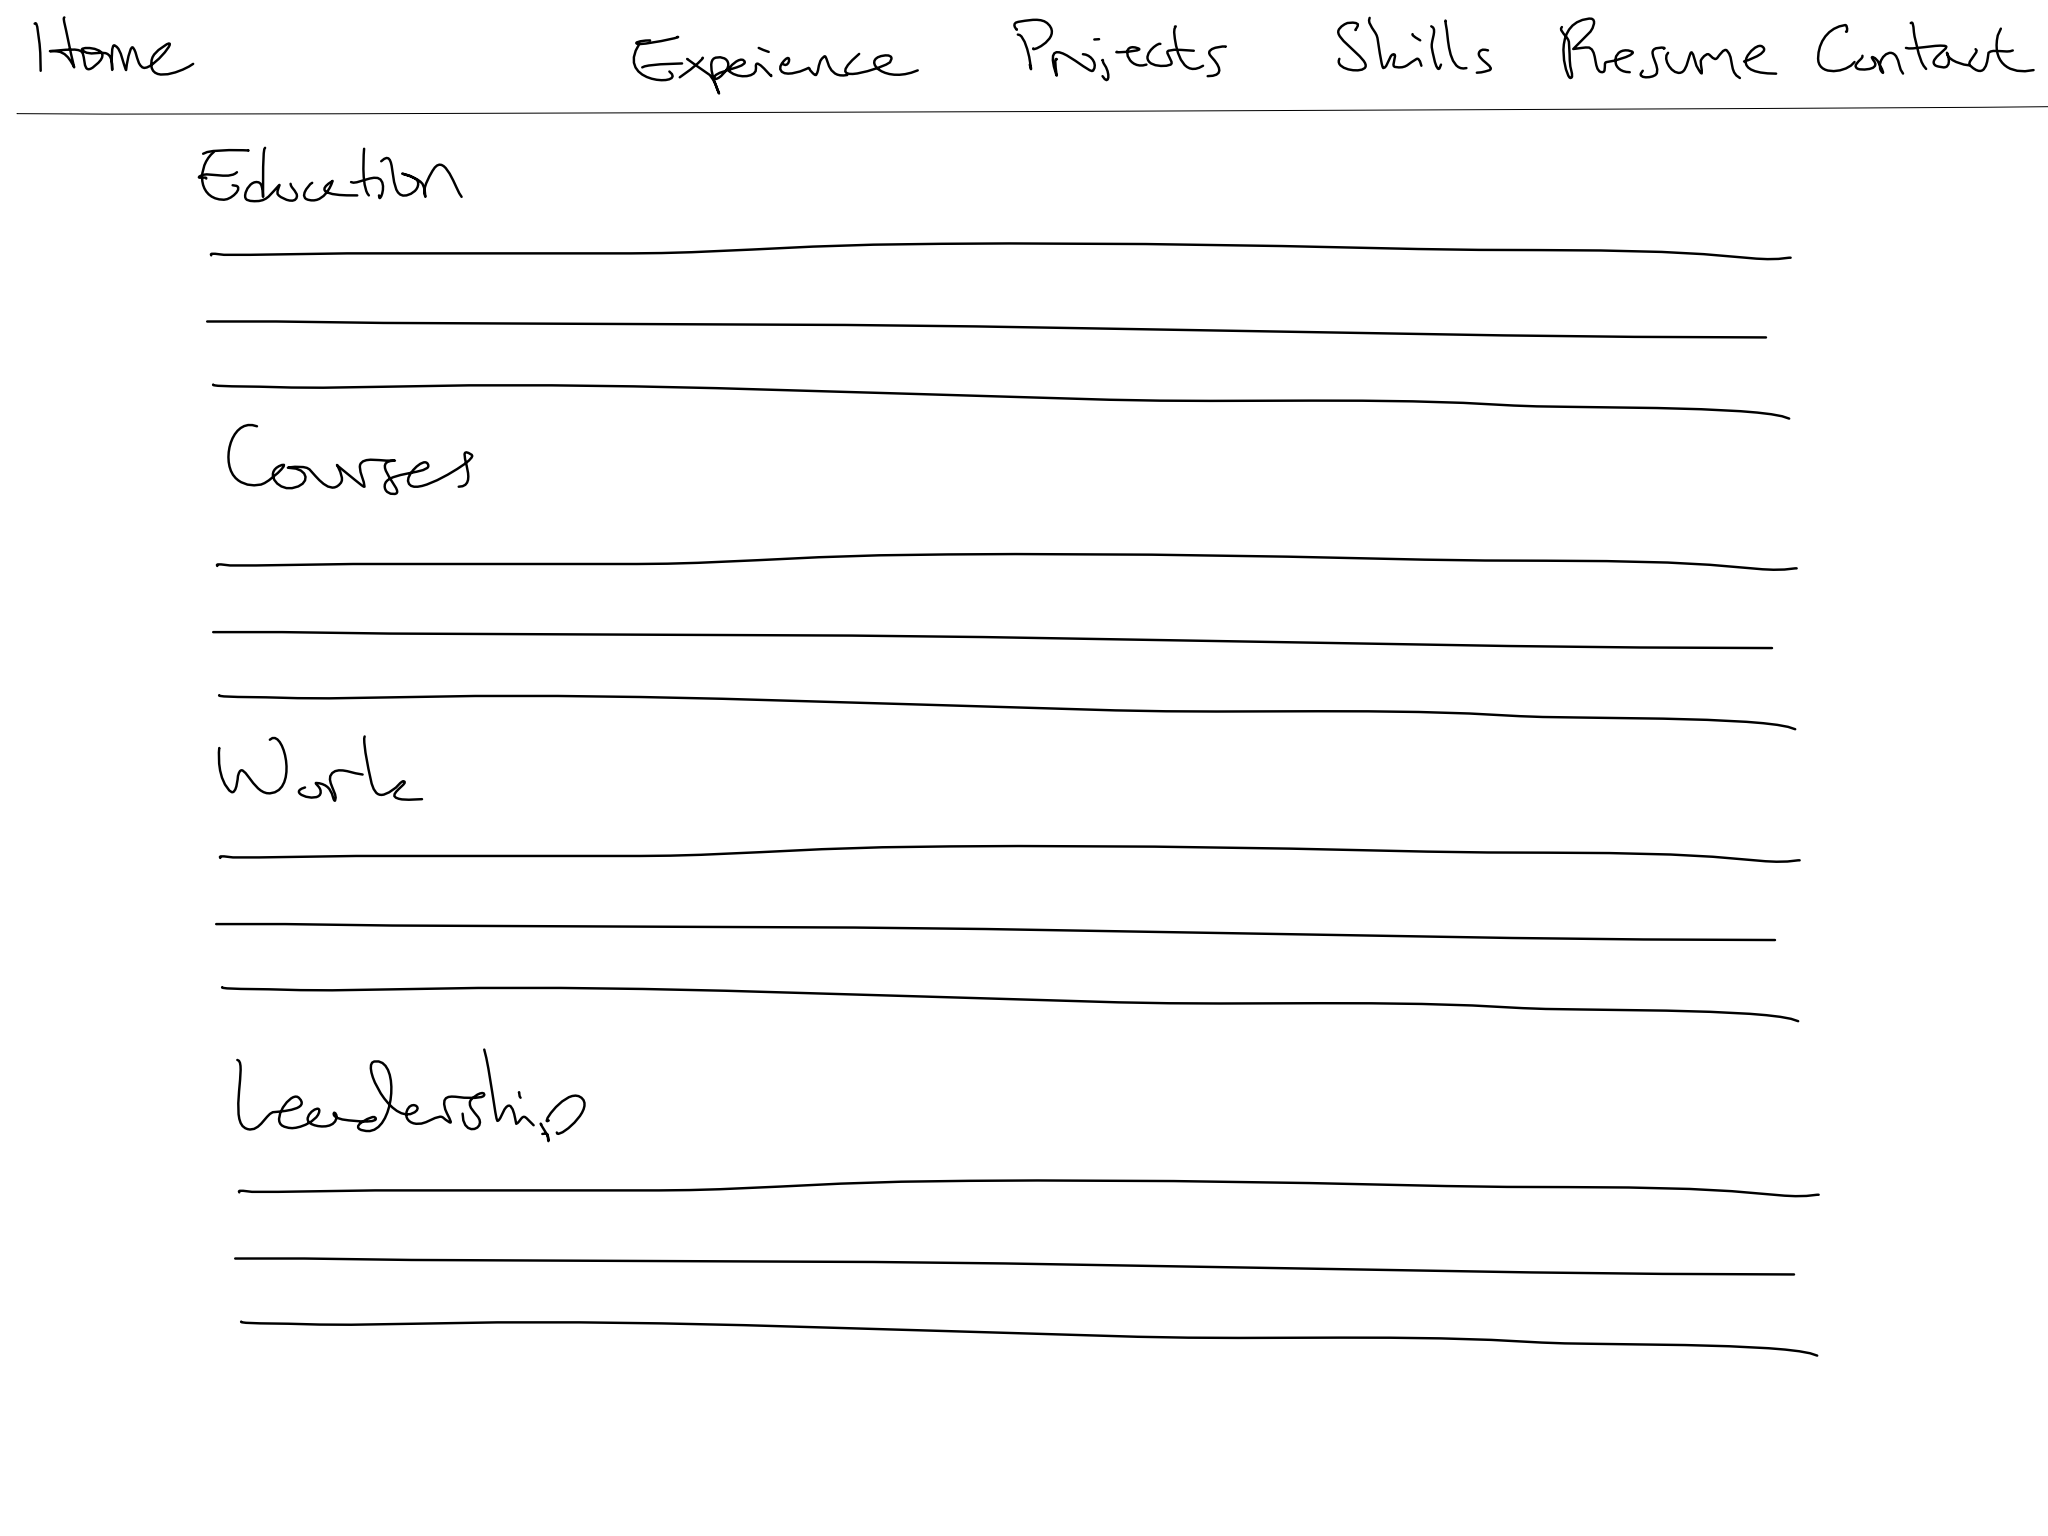 Home Experience Projects Skills Resume Contact
Education
Courses
Work
Leadership